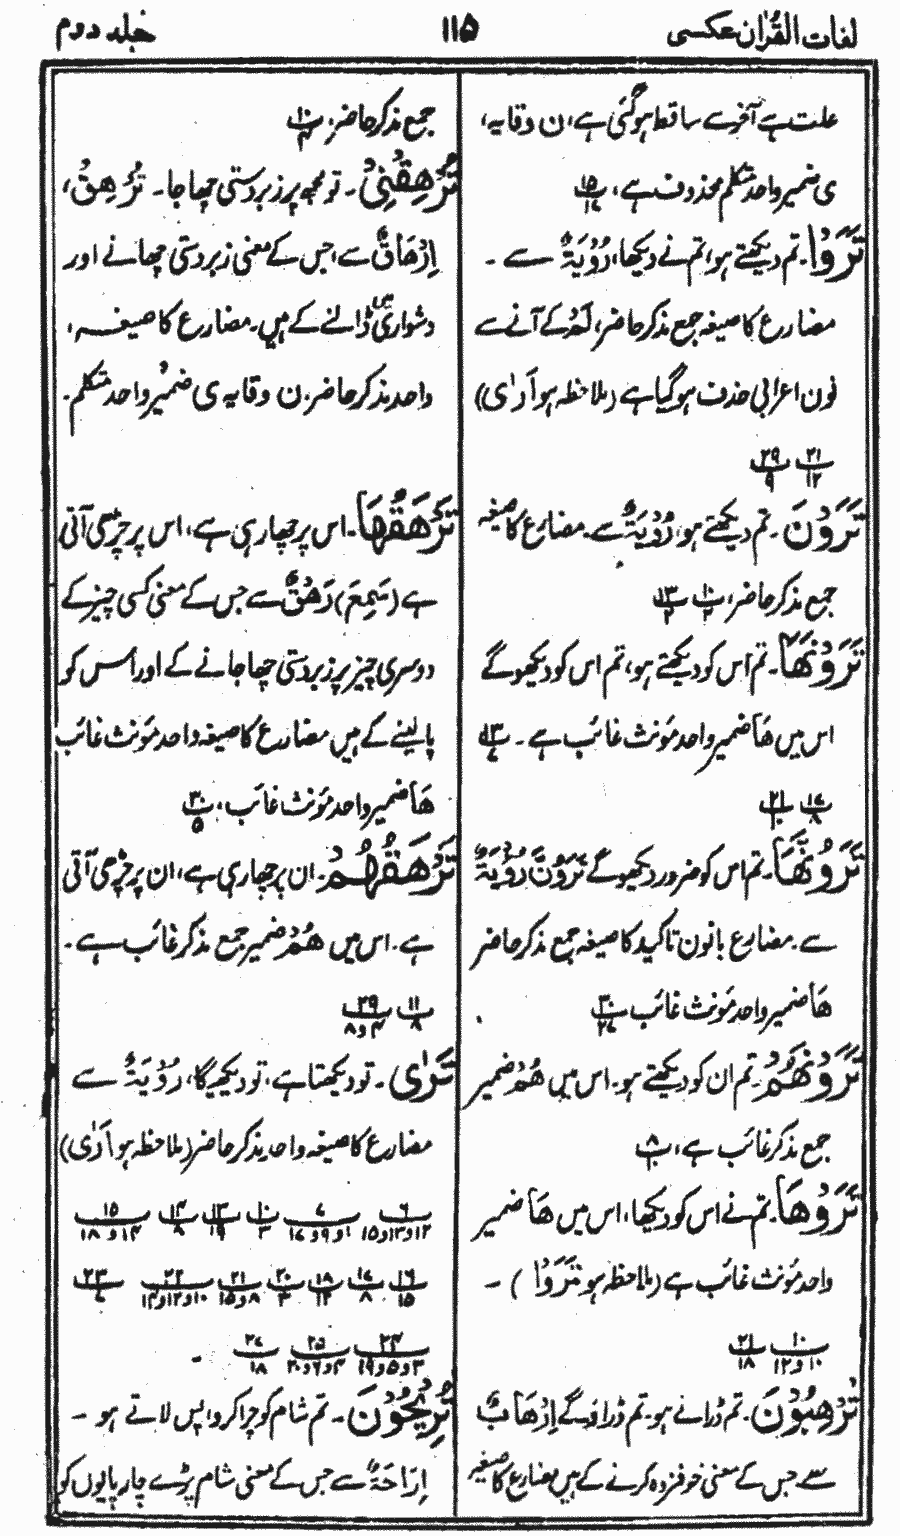 لغات القرآن عکسی ۱۱۵ جلد دوم
علت ہے آخر سے ساقط ہو گئی ہے، ن وقایہ،
ی ضمیر واحد متکلم محذوف ہے،
تَرَوْا۔ تم دیکھتے ہو، تم نے دیکھا، رُؤْیَۃٌ سے۔
مضارع کا صیغہ جمع مذکر حاضر، لَمْ کے آنے سے
نون اعرابی حذف ہو گیا ہے (ملاحظہ ہو اَرٰی)
۲۱ ۲۹
۱۲ ۹
تَرَوْنَ۔ تم دیکھتے ہو، رُؤْیَۃٌ سے۔ مضارع کا صیغہ
جمع مذکر حاضر، ۱۰/۲ ۱۳/۲
تَرَوْنَهَا۔ تم اُس کو دیکھتے ہو، تم اس کو دیکھو گے
اس میں ھَا ضمیر واحد مؤنث غائب ہے۔ ۱۳/۷
۱۷ ۲۱
۸ ۱۰
تَرَوُنَّهَا۔ تم اس کو ضرور دیکھو گے تَرَوُنَّ رُؤْیَۃٌ
سے۔ مضارع بانون تاکید کا صیغہ جمع مذکر حاضر
ھَا ضمیر واحد مؤنث غائب ۳۰/۲۷
تَرَوْنَهُمْ۔ تم ان کو دیکھتے ہو۔ اس میں ھُمْ ضمیر
جمع مذکر غائب ہے، ۸/۱۰
تَرَوْهَا۔ تم نے اس کو دیکھا، اس میں ھَا ضمیر
واحد مؤنث غائب ہے (ملاحظہ ہو تَرَوْا) ۔
۱۰ ۲۱
۱۰ و ۱۲ ۱۸
تُرْهِبُوْنَ۔ تم ڈراتے ہو۔ تم ڈراؤ گے اِرْهَابٌ
سے جس کے معنی خوفزدہ کرنے کے ہیں مضارع کا صیغہ
جمع مذکر حاضر، ۱۰/۴
تُرْهِقْنِیْ۔ تو مجھ پر زبردستی چھا جا۔ تُرْهِقُ،
اِرْهَاقٌ سے، جس کے معنی زبردستی چھانے اور
دشواری میں ڈالنے کے ہیں۔ مضارع کا صیغہ،
واحد مذکر حاضر۔ ن وقایہ ی ضمیر واحد متکلم۔
تَرْهَقُهَا۔ اس پر چھا رہی ہے، اس پر چڑھی آتی
ہے (سَمِعَ) رَهْقٌ سے جس کے معنی کسی چیز کے
دوسری چیز پر زبردستی چھا جانے کے اور اُس کو
پالینے کے ہیں مضارع کا صیغہ واحد مؤنث غائب
ھَا ضمیر واحد مؤنث غائب، ۳۰/۵
تَرْهَقُهُمْ۔ ان پر چھا رہی ہے، ان پر چڑھی آتی
ہے۔ اس میں ھُمْ ضمیر جمع مذکر غائب ہے۔
۱۱ ۲۹
۸ ۴ و ۸
تَرٰی۔ تو دیکھتا ہے، تو دیکھے گا، رُؤْیَۃٌ سے
مضارع کا صیغہ واحد مذکر حاضر (ملاحظہ ہو اَرٰی)
۶ ۷ ۱۰ ۱۳ ۱۴ ۱۵
۱۲ و ۱۳ و ۱۵ ۱ و ۹ و ۱۷ ۳ ۱۹ ۸ ۱۴ و ۱۸
۱۶ ۱۷ ۱۸ ۲۰ ۲۱ ۲۲ ۲۳
۱۵ ۸ ۱۲ ۳ ۸ و ۱۵ ۱۰ و ۱۲ و ۱۴ ۷
۲۴ ۲۵ ۲۷
۳ و ۵ و ۱۹ ۴ و ۶ و ۲۰ ۱۸ ۔
تُرِیْحُوْنَ۔ تم شام کو چرا کر واپس لاتے ہو ۔
اِرَاحَۃٌ سے جس کے معنی شام پڑے چارپایوں کو